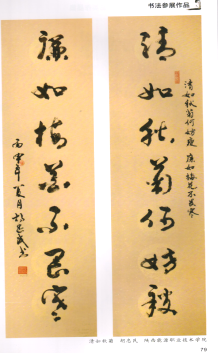 书法参展作品
清如秋菊何妨瘦
廉如梅花不畏寒
清如秋菊何妨瘦 廉如梅花不畏寒
年夏月
清如秋菊 陕西能源职业技术学院
79